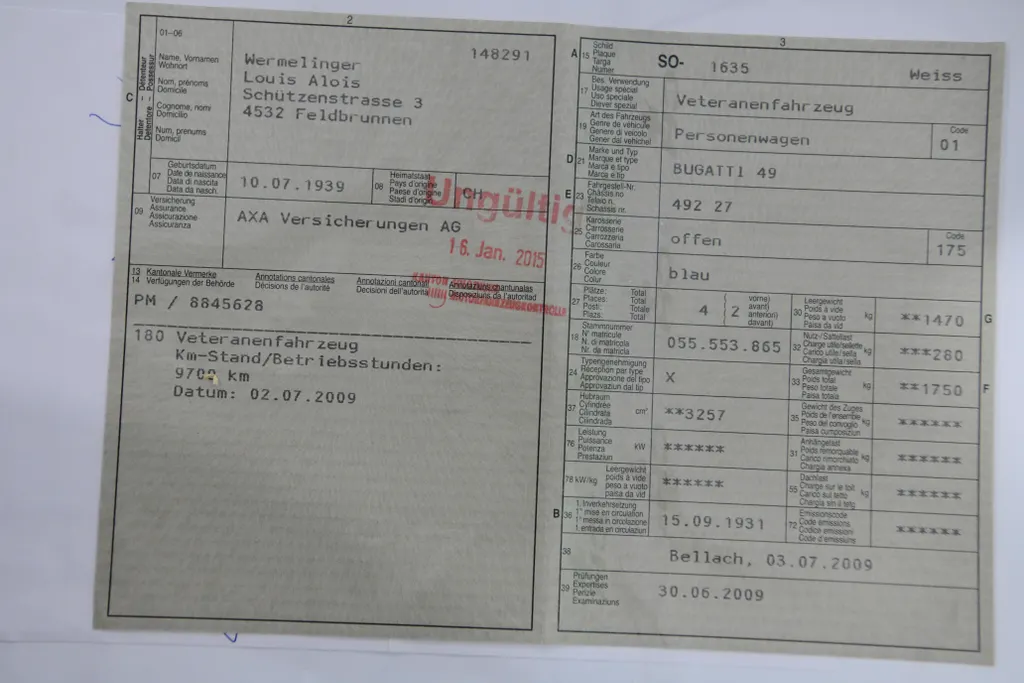 2
01-06
Name, Vornamen
Wohnort
Nom, prénoms
Domicile
Cognome, nomi
Domicilio
Num, prenums
Domicil
C
Halter Détenteur
Detentore Possessur
148291
Wermelinger
Louis Alois
Schützenstrasse 3
4532 Feldbrunnen
07
Geburtsdatum
Date de naissance
Data di nascita
Data da nasch.
10.07.1939
08
Heimatstaat
Pays d'origine
Paese d'origine
Stadi d'origin
CH
Ungültig
09
Versicherung
Assurance
Assicurazione
Assicuranza
AXA Versicherungen AG
16. Jan. 2015
13 Kantonale Vermerke Annotations cantonales Annotazioni cantonali Annotaziuns chantunalas
14 Verfügungen der Behörde Décisions de l'autorité Decisioni dell'autorità Disposiziuns da l'autoritad
KANTON
MOTORFAHRZEUGKONTROLLE
PM / 8845628
180 Veteranenfahrzeug
Km-Stand/Betriebsstunden:
9702 km
Datum: 02.07.2009
3
A
15
Schild
Plaque
Targa
Numer
SO- 1635
Weiss
17
Bes. Verwendung
Usage spécial
Uso speciale
Diever spezial
Veteranenfahrzeug
19
Art des Fahrzeugs
Genre de véhicule
Genere di veicolo
Gener dal vehichel
Personenwagen
Code
01
D
21
Marke und Typ
Marque et type
Marca e tipo
Marca e tip
BUGATTI 49
E
23
Fahrgestell-Nr.
Châssis no
Telaio n.
Schassis nr.
492 27
25
Karosserie
Carrosserie
Carrozzeria
Carossaria
offen
Code
175
26
Farbe
Couleur
Colore
Colur
blau
27
Plätze: Total
Places: Total
Posti: Totale
Plazs: Total
4
2
vorne)
avant)
anteriori)
davant)
30
Leergewicht
Poids à vide
Peso a vuoto
Paisa da vid
kg
**1470
G
18
Stammnummer
N° matricule
N. di matricola
Nr. da matricla
055.553.865
32
Nutz-/Sattellast
Charge utile/sellette
Carico utile/sella
Chargia utila/sella
kg
***280
24
Typengenehmigung
Réception par type
Approvazione del tipo
Approvaziun dal tip
X
33
Gesamtgewicht
Poids total
Peso totale
Paisa totala
kg
**1750
F
37
Hubraum
Cylindrée
Cilindrata
Cilindrada
cm³
**3257
35
Gewicht des Zuges
Poids de l'ensemble
Peso del convoglio
Paisa cumposiziun
kg
******
76
Leistung
Puissance
Potenza
Prestaziun
kW
******
31
Anhängelast
Poids remorquable
Carico rimorchiato
Chargia annexa
kg
******
78 kW/kg
Leergewicht
poids à vide
peso a vuoto
paisa da vid
******
55
Dachlast
Charge sur le toit
Carico sul tetto
Chargia sin il tetg
kg
******
B
36
1. Inverkehrsetzung
1re mise en circulation
1a messa in circolazione
1. entrada en circulaziun
15.09.1931
72
Emissionscode
Code émissions
Codice emissioni
Code d'emissiuns
******
38
Bellach, 03.07.2009
39
Prüfungen
Expertises
Perizie
Examinaziuns
30.06.2009